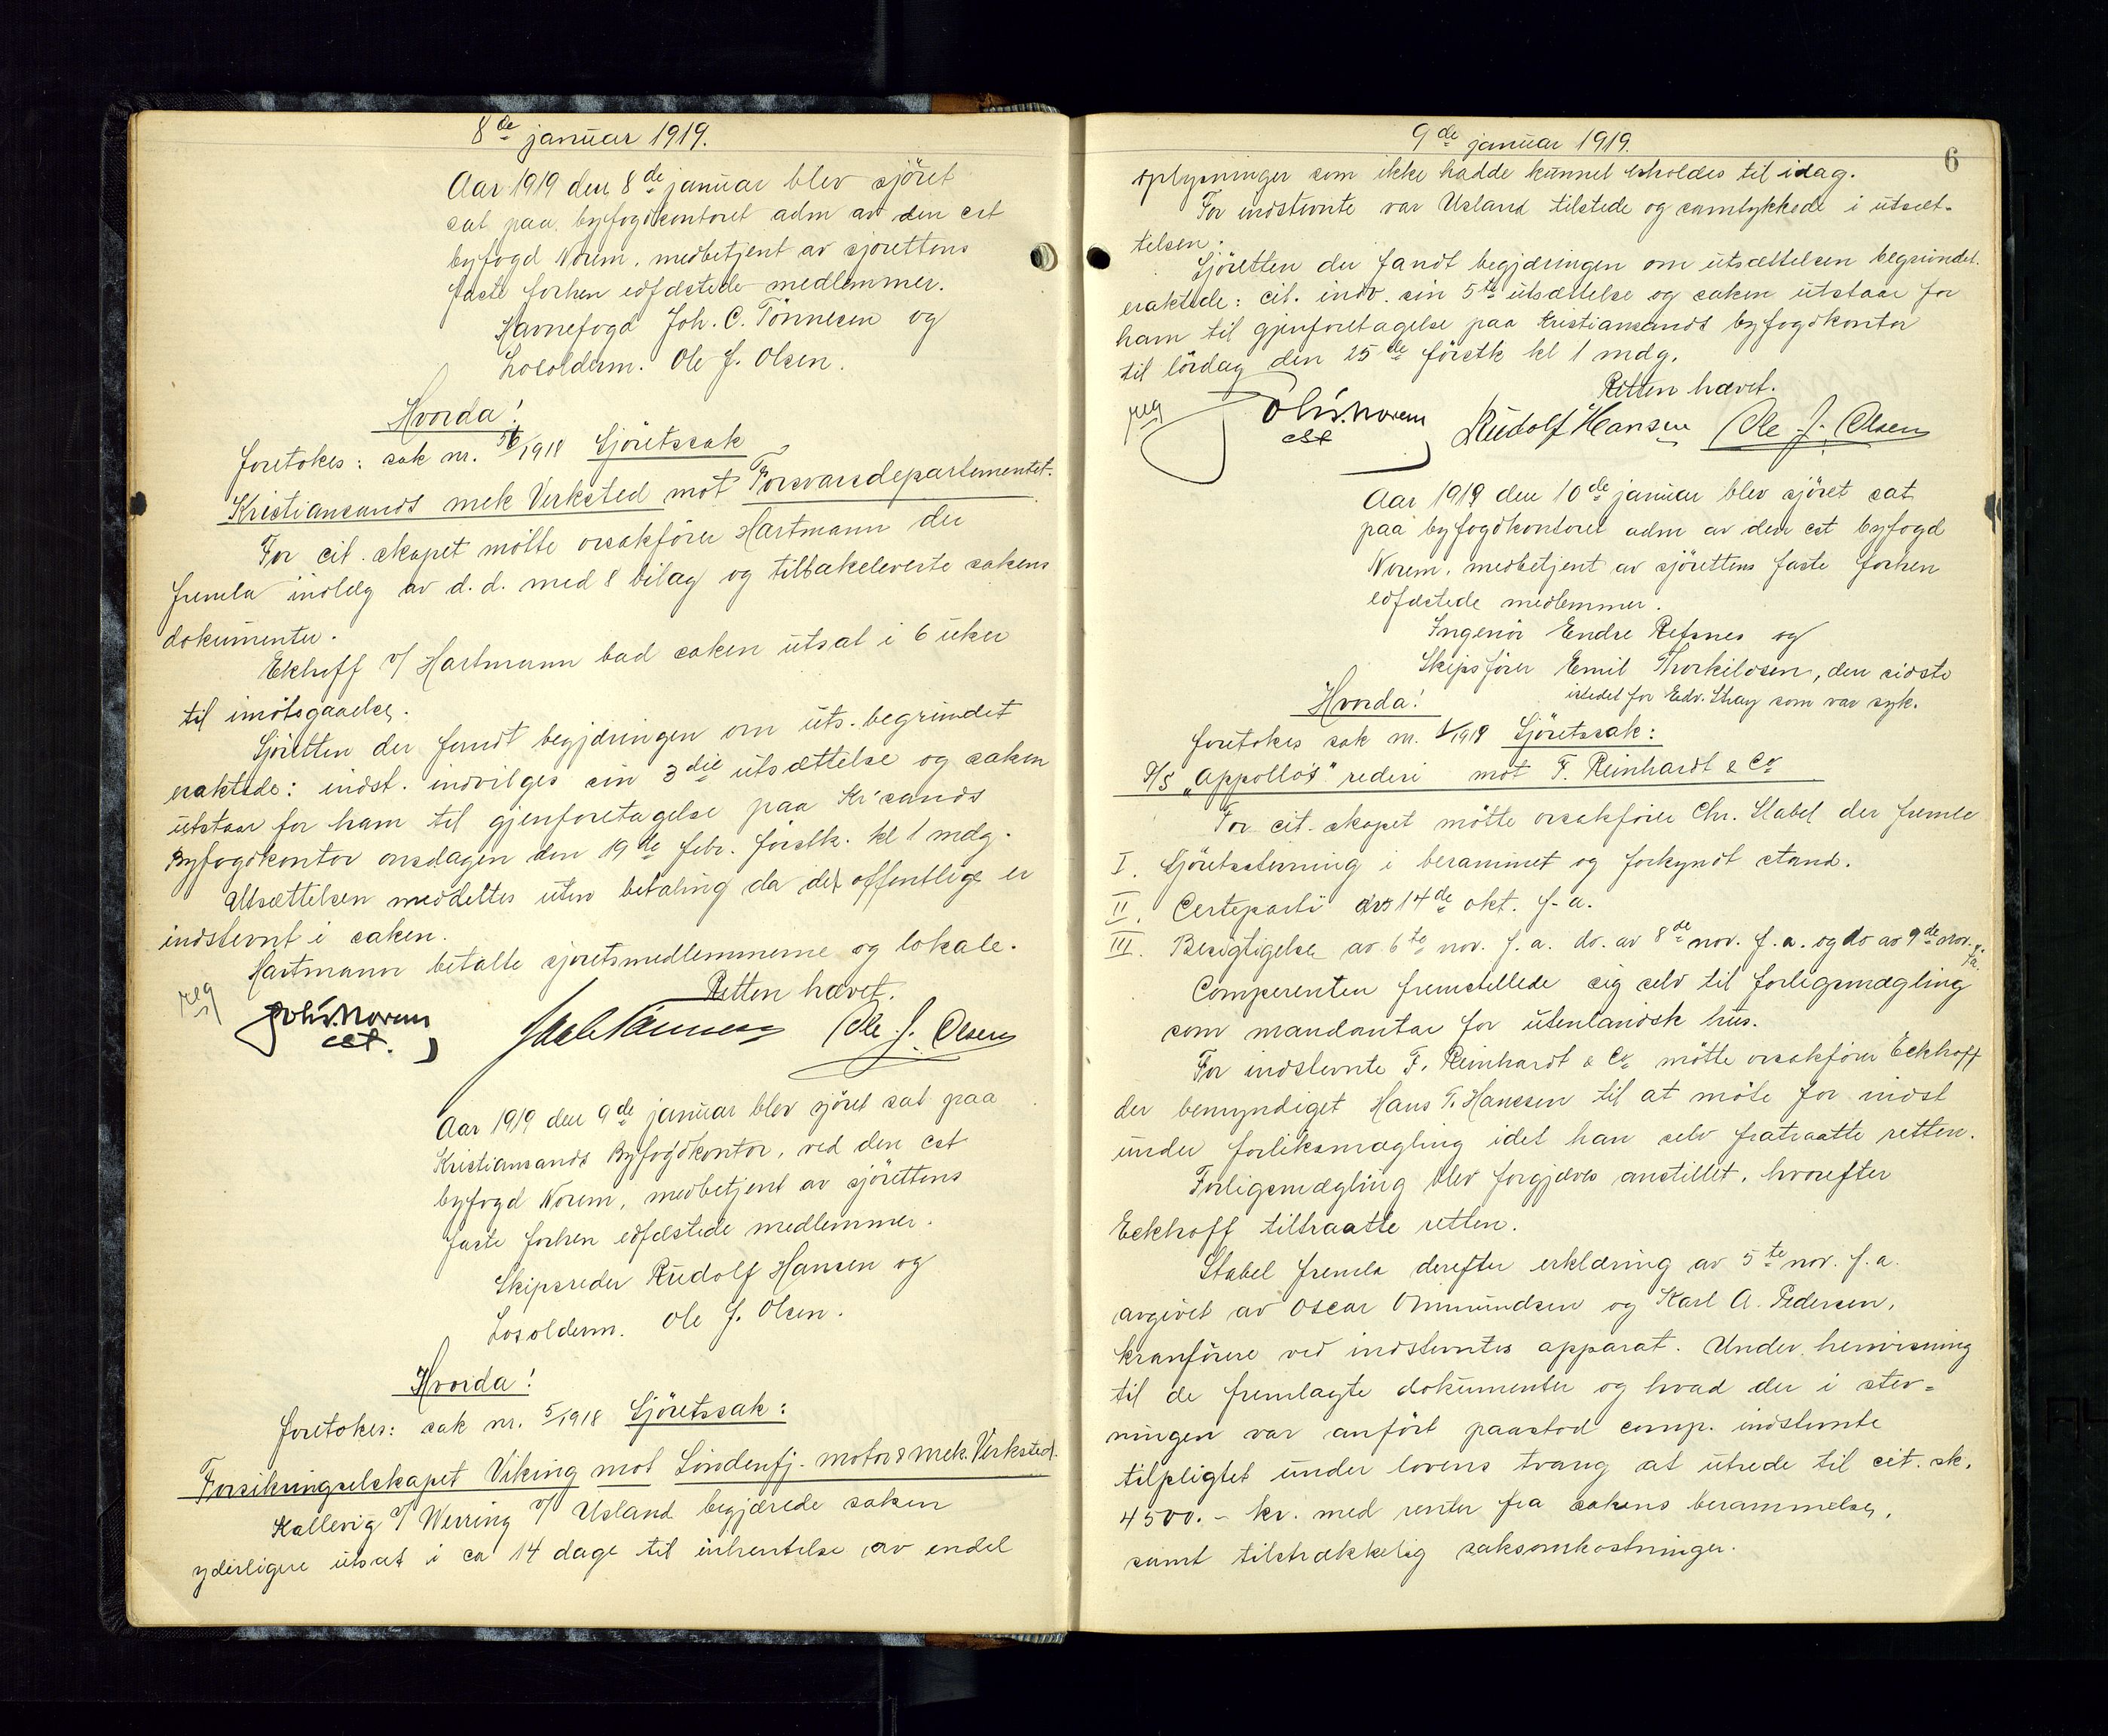 8de januar 1919.
Aar 1919 den 8de januar blev sjöret
sat paa byfogdkontoret adm av den cst
byfogd Norem, medbetjent av sjörettens
faste forhen edfæstede medlemmer.
Havnefogd Joh. C. Tönnesen og
Losolderm. Ole J. Olsen.
Hvorda!
foretokes: sak nr. /1918 Sjöretssak
Kristiansands mek Verksted mot Forsvarsdepartementet.
For cit. skapet mötte orsakförer Hartmann der
fremla indlæg av d. d. med 8 bilag og tilbakeleverte sakens
dokumenter.
Ekhoff v/ Hartmann bad saken utsat i 6 uker
til imötegaaelse.
Sjöretten der fandt begjæringen om uts. begrundet
eraktede: indst. indvilges sin 3die utsættelse og saken
utstaar for ham til gjenforetagelse paa Kr'sands
Byfogdkontor onsdagen den 19de febr. förstk. kl 1 mdg.
Utsættelsen meddeltes uten betaling da det offentlige er
indstevnt i saken.
Hartmann betalte sjöretsmedlemmerne og lokale.
Retten hævet.
Norem
cst.
Ole J. Olsen
Aar 1919 den 9de januar blev sjöret sat paa
Kristiansands Byfogdkontor, ved den cst
byfogd Norem, medbetjent av sjörettens
faste forhen edfæstede medlemmer.
Skipsreder Rudolf Hansen og
Losolderm. Ole J. Olsen.
Hvorda!
foretokes: sak nr. 5/1918 Sjöretssak:
Forsikringselskapet Viking mot Söndenfj. motor & mek. Verksted.
Kallevig v/ Werring v/ Usland begjærede saken
yderligere utsat i ca 14 dage til inhentelse av endel
9de januar 1919.
6
oplysninger som ikke hadde kunnet erholdes til idag.
For indstevnte var Usland tilstede og samtykkede i utsæt-
telsen.
Sjöretten der fandt begjæringen om utsættelsen begrundet.
eraktede: cit. indv. sin 5te utsættelse og saken utstaar for
ham til gjenforetagelse paa Kristiansands byfogdkontor
til lördag den 25de förstk kl 1 mdg.
Retten hævet.
Norem
cst
Rudolf Hansen
Ole J. Olsen
Aar 1919 den 10de januar blev sjöret sat
paa byfogdkontoret adm av den cst byfogd
Norem, medbetjent av sjörettens faste forhen
edfæstede medlemmer.
Ingeniör Endre Refsnes og
Skipsförer Emil Thorkildsen, den sidste
istedet for Edv. Stray som var syk.
Hvorda!
foretokes sak nr. 1/1919 Sjöretssak:
A/S "Appollo's" rederi mot F. Reinhardt & Co
For cit. skapet mötte orsakförer Chr. Stabel der fremla
I. Sjöretsstevning i berammet og forkyndt stand.
II. Certeparti av 14de okt. f. a.
III. Besigtigelse av 6te nov. f. a. do. av 8de nov. f. a. og do av 9de nov. f.a.
Comperenten fremstellede sig selv til forligsmægling
som mandantar for utenlandsk hus.
For indstevnte F. Reinhardt & Co mötte orsakförer Eckhoff
der bemyndiget Hans T. Hanssen til at möte for indst
under forliksmægling idet han selv fratraatte retten.
Forligsmægling blev forgjæves anstillet, hvorefter
Eckhoff tiltraatte retten.
Stabel fremla derefter erklæring av 5te nov. f. a.
avgivet av Oscar Ommundsen og Karl A. Pedersen,
kranförere ved indstevntes apparat. Under henvisning
til de fremlagte dokumenter og hvad der i stev=
ningen var anfört paastod comp. indstevnte
tilpligtet under lovens tvang at utrede til cit. sk.
4500.- kr. med renter fra sakens berammelse,
samt tilstrækkelig saksomkostninger.